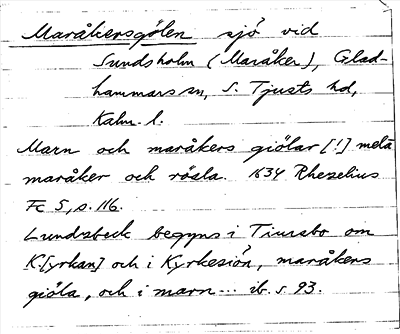 Maråkersgölen sjö vid
Sundsholm (Maråker), Glad-
hammars sn, S. Tjusts hd,
Kalm. l.
Marn och maråkers giölar [!] melā
maråker och rösla. 1634 Rhezelius
Fc 5, s. 116.
Lundzbeck begyns i Tiursbo om
K.[yrkan] och i Kyrkesión, maråkers
giöla, och i marn... ib. s. 93.